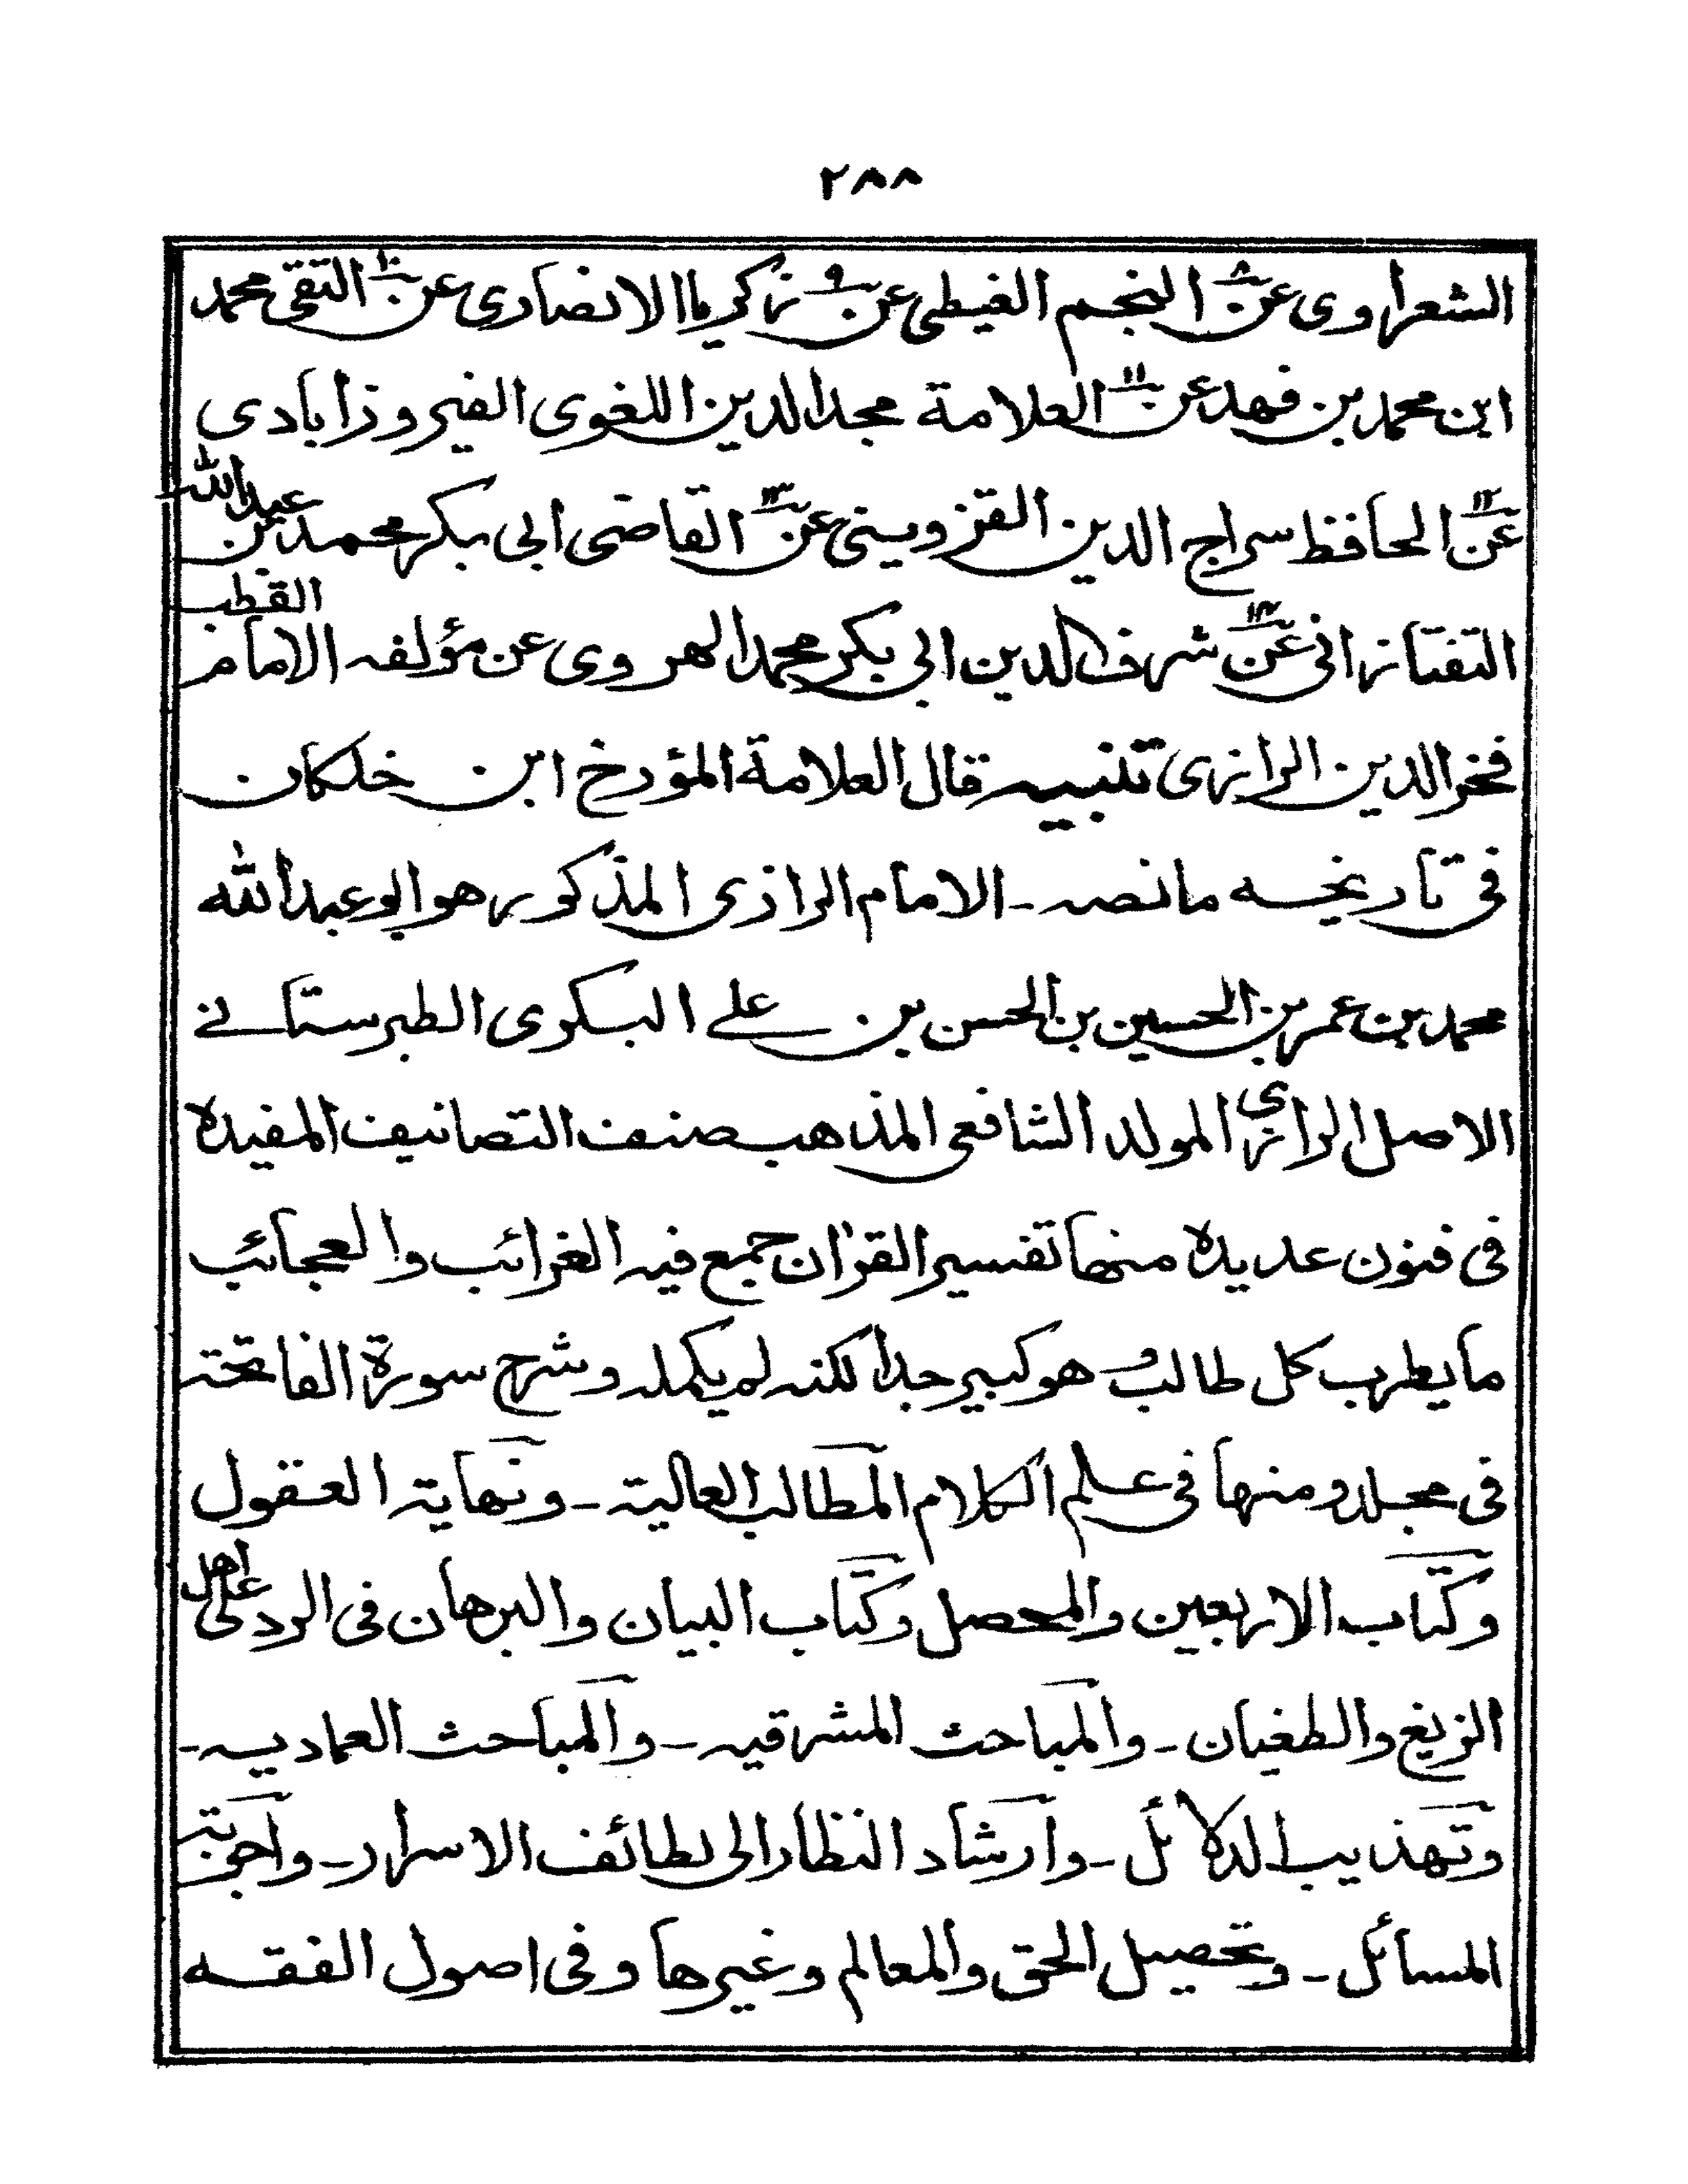 ٢٨٨
الشعراوى عن ٨ النجم الغيطى عن ٩ زكريا الانصارى عن ١٠ التقى محمد
ابن محمد بن فهد عن ١١ العلامة مجد الدين اللغوى الفيروزابادى
عن ١٢ الحافظ سراج الدين القزوينى عن ١٣ القاضى ابى بكر محمد بن عبد الله
التفتازانى عن ١٤ شرف الدين ابى بكر محمد الهروى عن مؤلفه الامام القطب
فخر الدين الرازى تنبيه قال العلامة المؤرخ ابن خلكان
فى تاريخه ما نصه ـ الامام الرازى المذكور هو ابو عبد الله
محمد بن عمر بن الحسين بن الحسن بن على البكرى الطبرستانے
الاصل الرازى المولد الشافعى المذهب صنف التصانيف المفيدة
فى فنون عديدة منها تفسير القرآن جمع فيه الغرائب والعجائب
ما يطرب كل طالب و هو كبير جدا لكنه لم يكمله وشرح سورة الفاتحة
فى مجلد ومنها فى علم الكلام المطالب العالية ـ ونهاية العقول
وكتاب الاربعين والمحصل وكتاب البيان والبرهان فى الرد على اهل
الزيغ والطغيان ـ والمباحث المشرقيه ـ والمباحث العماديه ـ
وتهذيب الدلائل ـ وارشاد النظار الى لطائف الاسرار ـ واجوبة
المسائل ـ وتحصيل الحق والمعالم وغيرها وفى اصول الفقه